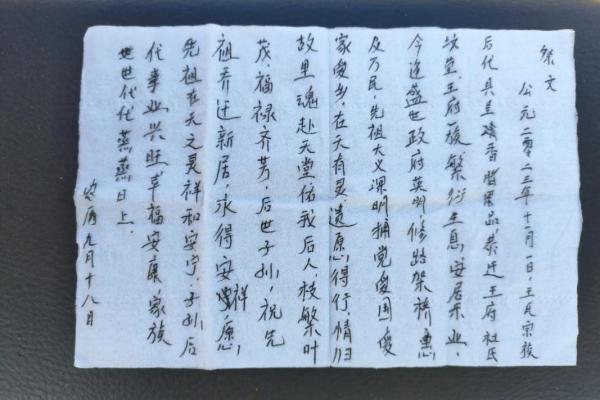 祭文
公元二零二三年十一月一日,王氏宗族
后代具呈香果品,恭迁王府杜氏
坟茔.王府一族繁衍生息,安居乐业,
今逢盛世政府英明修路架桥惠
及万民,先祖大义深明拥党爱国爱
家爱乡,在天有灵遗愿得行,情归
故里魂赴天堂佑我后人,枝繁叶
茂,福禄齐芳,后世子孙,祝先
祖乔迁新居,求得安祥,愿
先祖在天之灵祥和安宁,子孙后
代事业兴旺幸福安康家族
世世代代蒸蒸日上.
九月十八日